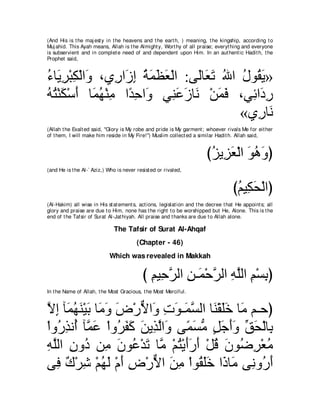 (And His is the majesty in the heavens and the earth, ) meaning, the kingship, according to
Mujahid. This Ayah means, Allah is the Almighty, Worthy of all praise; everything and everyone
is subservient and in complete need of and dependent upon Him. In an authentic Hadith, the
Prophet said,
«يَقُولُ اللهُ تَعَالَى: الْعَظَمَةُ إِزَارِي، وَالْكِبْرِيَاءُ
رِدَائِي، فَمَنْ نَازَعَنِي وَاحِدًا مِنْهُمَا أَسْكَنْتُهُ
نَارِي»
(Allah the Exalted said, "Glory is My robe and pride is My garment; whoever rivals Me for either
of them, I will make him reside in My Fire!") Muslim collected a similar Hadith. Allah said,
(وَهُوَ الْعَزِيزُ)
(and He is the Al-`Aziz,) Who is never resisted or rivaled,
(الْحَكِيمُ)
(Al-Hakim) all wise in His statements, actions, legislation and the decree that He appoints; all
glory and praise are due to Him, none has the right to be worshipped but He, Alone. This is the
end of the Tafsir of Surat Al-Jathiyah. All praise and thanks are due to Allah alone.
The Tafsir of Surat Al-Ahqaf
(Chapter - 46)
Which was revealed in Makkah
(بِسْمِ اللَّهِ الرَّحْمَـنِ الرَّحِيمِ )
In the Name of Allah, the Most Gracious, the Most Merciful.
(حـم مَا خَلَقْنَا السَّمَـوَتِ وَالاٌّرْضَ وَمَا بَيْنَهُمَآ إِلاَّ
بِالْحَقِّ وَأَجَلٍ مُّسَمًى وَالَّذِينَ كَفَرُواْ عَمَّآ أُنذِرُواْ
مُعْرِضُونَ قُلْ أَرَأَيْتُمْ مَّا تَدْعُونَ مِن دُونِ اللَّهِ
أَرُونِى مَاذَا خَلَقُواْ مِنَ الاٌّرْضِ أَمْ لَهُمْ شِرْكٌ فِى